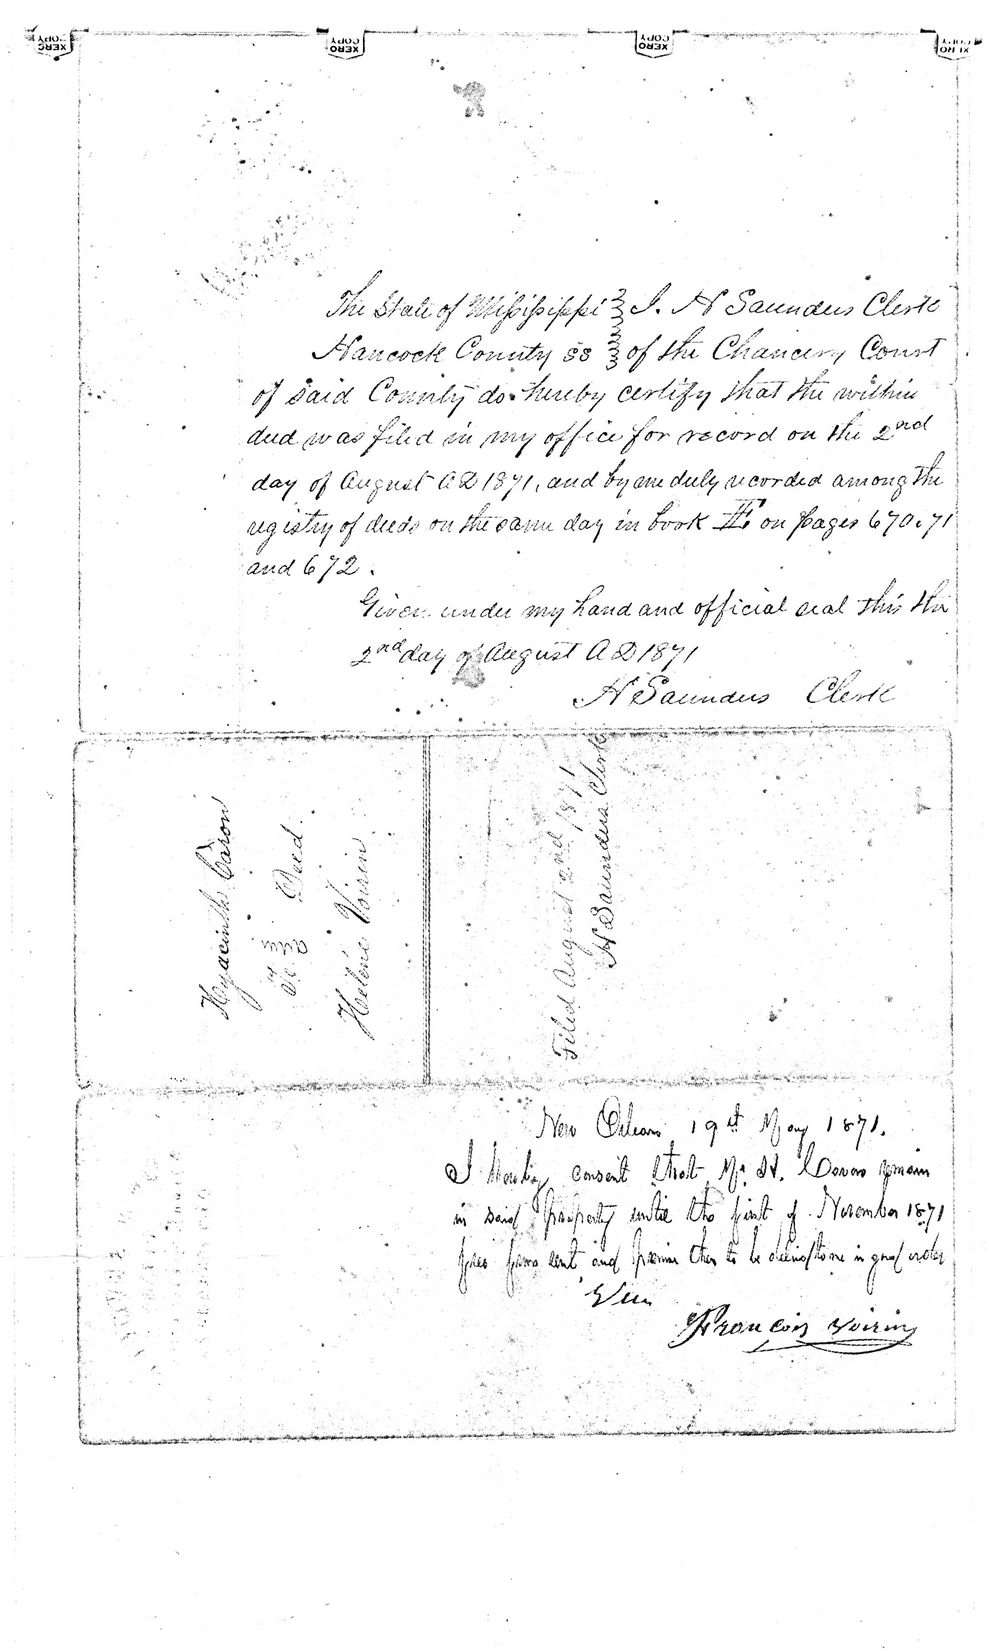 XERO COPY
XERO COPY
XERO COPY
XERO COPY
The State of Mississippi } I. H Saunders Clerk
Hancock County ss } of the Chancery Court
of said County do hereby certify that the within
deed was filed in my office for record on the 2nd
day of August A D 1871, and by me duly recorded among the
registry of deeds on the same day in book E on pages 670. 71
and 672.
Given under my hand and official seal this the
2nd day of August A D 1871
H Saunders Clerk
Hyacinthe Caron
To Deed
Helene Voirin
Filed August 2nd 1871
H Saunders Clerk
New Orleans 19st May 1871.
I hereby consent that Mr. H. Caron remain
in said property until the first of November 1871
free from rent and then to be in good order
François Voirin